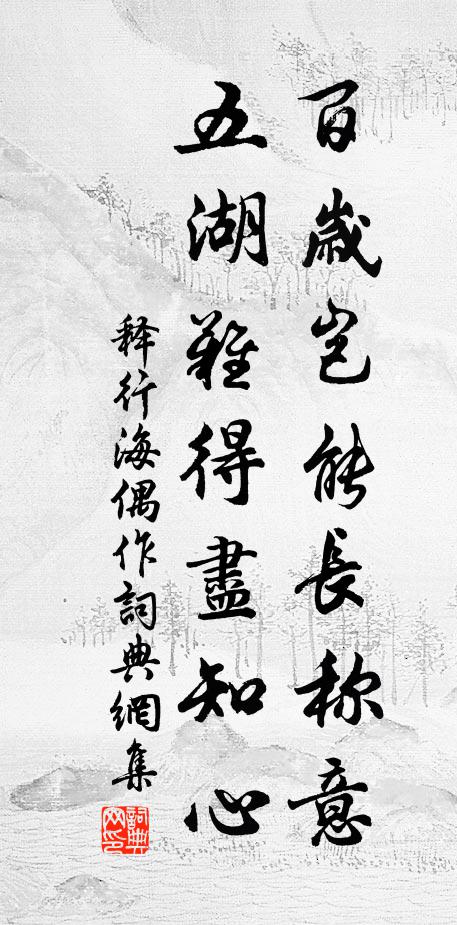 百歲豈能長称意
五湖難得盡知心
释行海偶作詞典網集
詞典网印